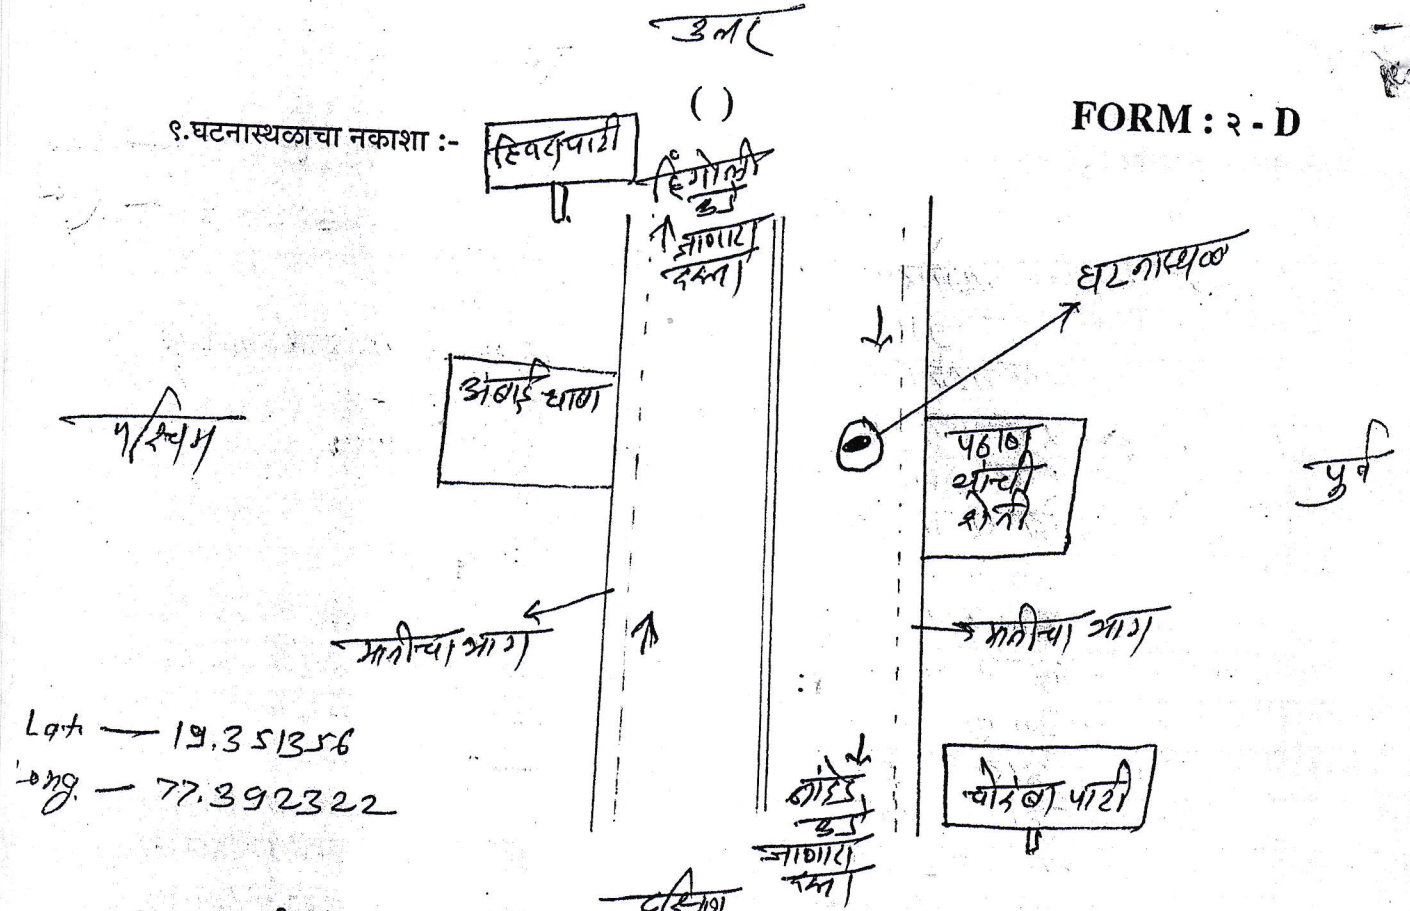 उत्तर
( )
FORM : २ - D
९.घटनास्थळाचा नकाशा :-
हिवरा पाटी
हिंगोली
कडे
जाणारा
रस्ता
घटनास्थळ
अंबाई धाबा
पश्चिम
पठाण
यांची
शेती
पुर्व
मातीचा भाग
मातीचा भाग
Lat. — 19.351356
Long. — 77.392322
नांदेड
कडे
जाणारा
रस्ता
चोरंबा पाटी
दक्षिण